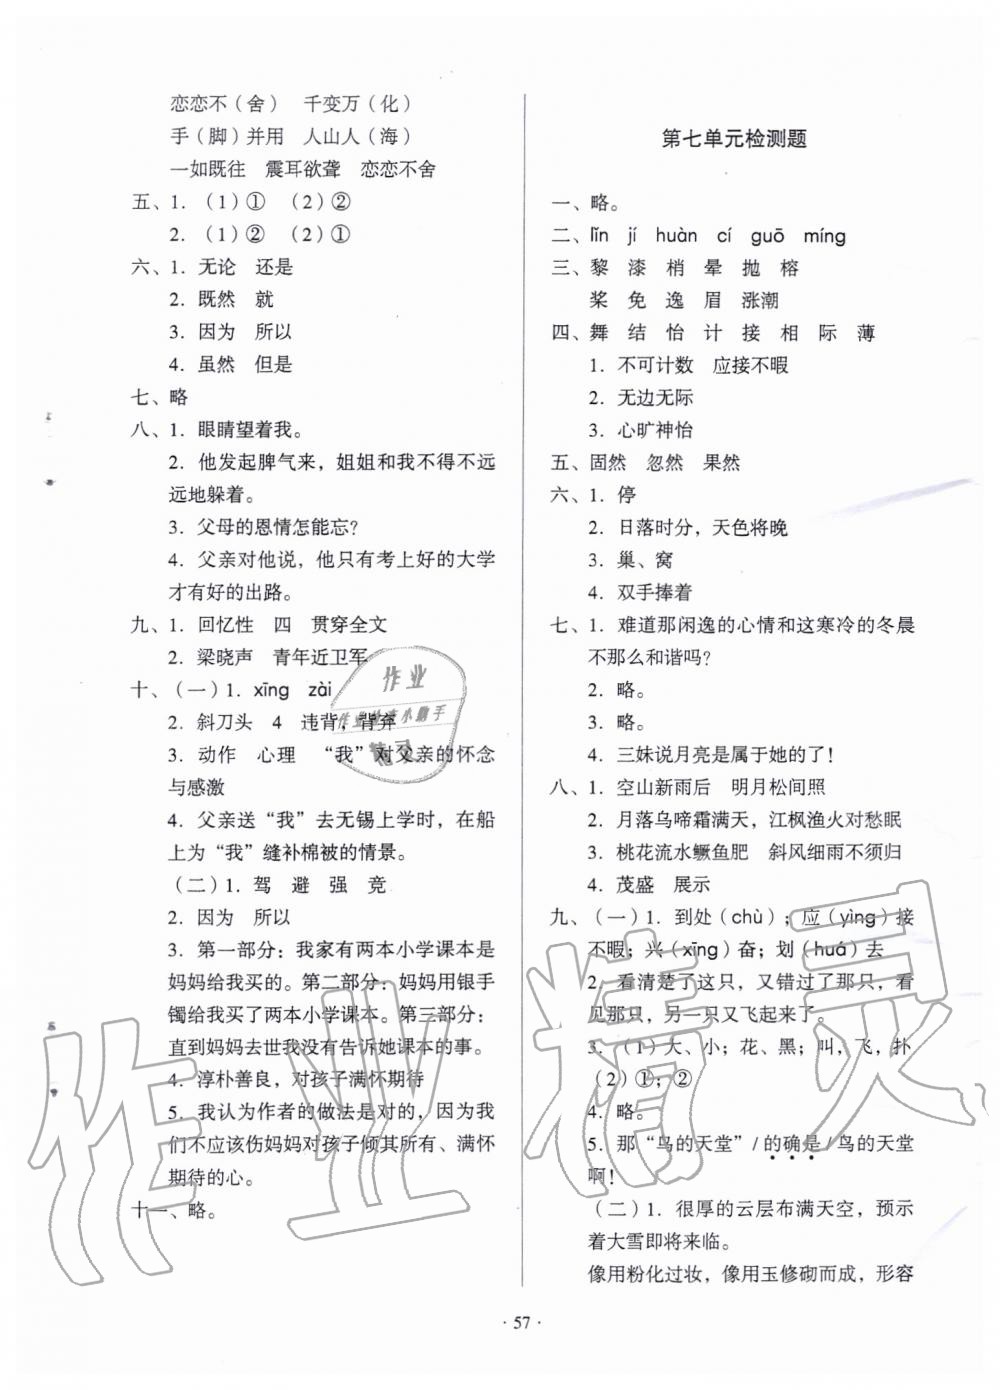 恋恋不（舍）　千变万（化）
手（脚）并用　人山人（海）
一如既往　震耳欲聋　恋恋不舍
五、1.（1）①　（2）②
2.（1）②　（2）①
六、1. 无论　还是
2. 既然　就
3. 因为　所以
4. 虽然　但是
七、略
八、1. 眼睛望着我。
2. 他发起脾气来，姐姐和我不得不远
远地躲着。
3. 父母的恩情怎能忘？
4. 父亲对他说，他只有考上好的大学
才有好的出路。
九、1. 回忆性　四　贯穿全文
2. 梁晓声　青年近卫军
十、（一）1. xīng　zài
2. 斜刀头　4　违背，背弃
3. 动作　心理　“我”对父亲的怀念
与感激
4. 父亲送“我”去无锡上学时，在船
上为“我”缝补棉被的情景。
（二）1. 驾　避　强　竞
2. 因为　所以
3. 第一部分：我家有两本小学课本是
妈妈给我买的。第二部分：妈妈用银手
镯给我买了两本小学课本。第三部分：
直到妈妈去世我没有告诉她课本的事。
4. 淳朴善良，对孩子满怀期待
5. 我认为作者的做法是对的，因为我
们不应该伤妈妈对孩子倾其所有、满怀
期待的心。
十一、略。
第七单元检测题
一、略。
二、lǐn　jí　huàn　cí　guō　míng
三、黎　漆　梢　晕　抛　榕
桨　免　逸　眉　涨潮
四、舞　结　怡　计　接　相　际　薄
1. 不可计数　应接不暇
2. 无边无际
3. 心旷神怡
五、固然　忽然　果然
六、1. 停
2. 日落时分，天色将晚
3. 巢、窝
4. 双手捧着
七、1. 难道那闲逸的心情和这寒冷的冬晨
不那么和谐吗？
2. 略。
3. 略。
4. 三妹说月亮是属于她的了！
八、1. 空山新雨后　明月松间照
2. 月落乌啼霜满天，江枫渔火对愁眠
3. 桃花流水鳜鱼肥　斜风细雨不须归
4. 茂盛　展示
九、（一）1. 到处（chù）；应（yìng）接
不暇；兴（xīng）奋；划（huá）去
2. 看清楚了这只，又错过了那只，看
见那只，另一只又飞起来了。
3.（1）大、小；花、黑；叫，飞，扑
（2）①；②
4. 略。
5. 那“鸟的天堂”/的确是/鸟的天堂
啊！
（二）1. 很厚的云层布满天空，预示
着大雪即将来临。
像用粉化过妆，像用玉修砌而成，形容
· 57 ·
作业
作业检查小助手
精灵
作业精灵